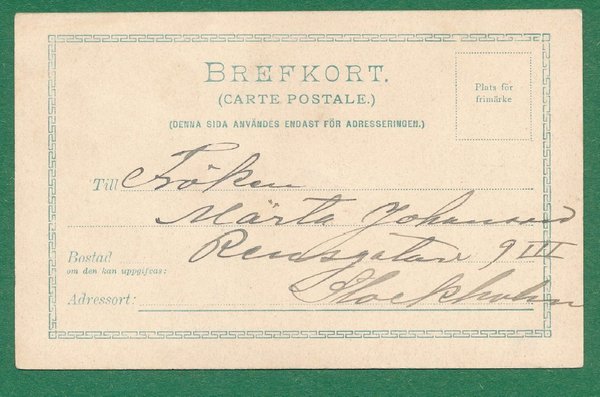 BREFKORT.
(CARTE POSTALE.)
(DENNA SIDA ANVÄNDES ENDAST FÖR ADRESSERINGEN.)
Plats för
frimärke
Till Fröken
Märta Johansson
Bostad Remsgatan 9 III
om den kan uppgifvas:
Adressort: Stockholm